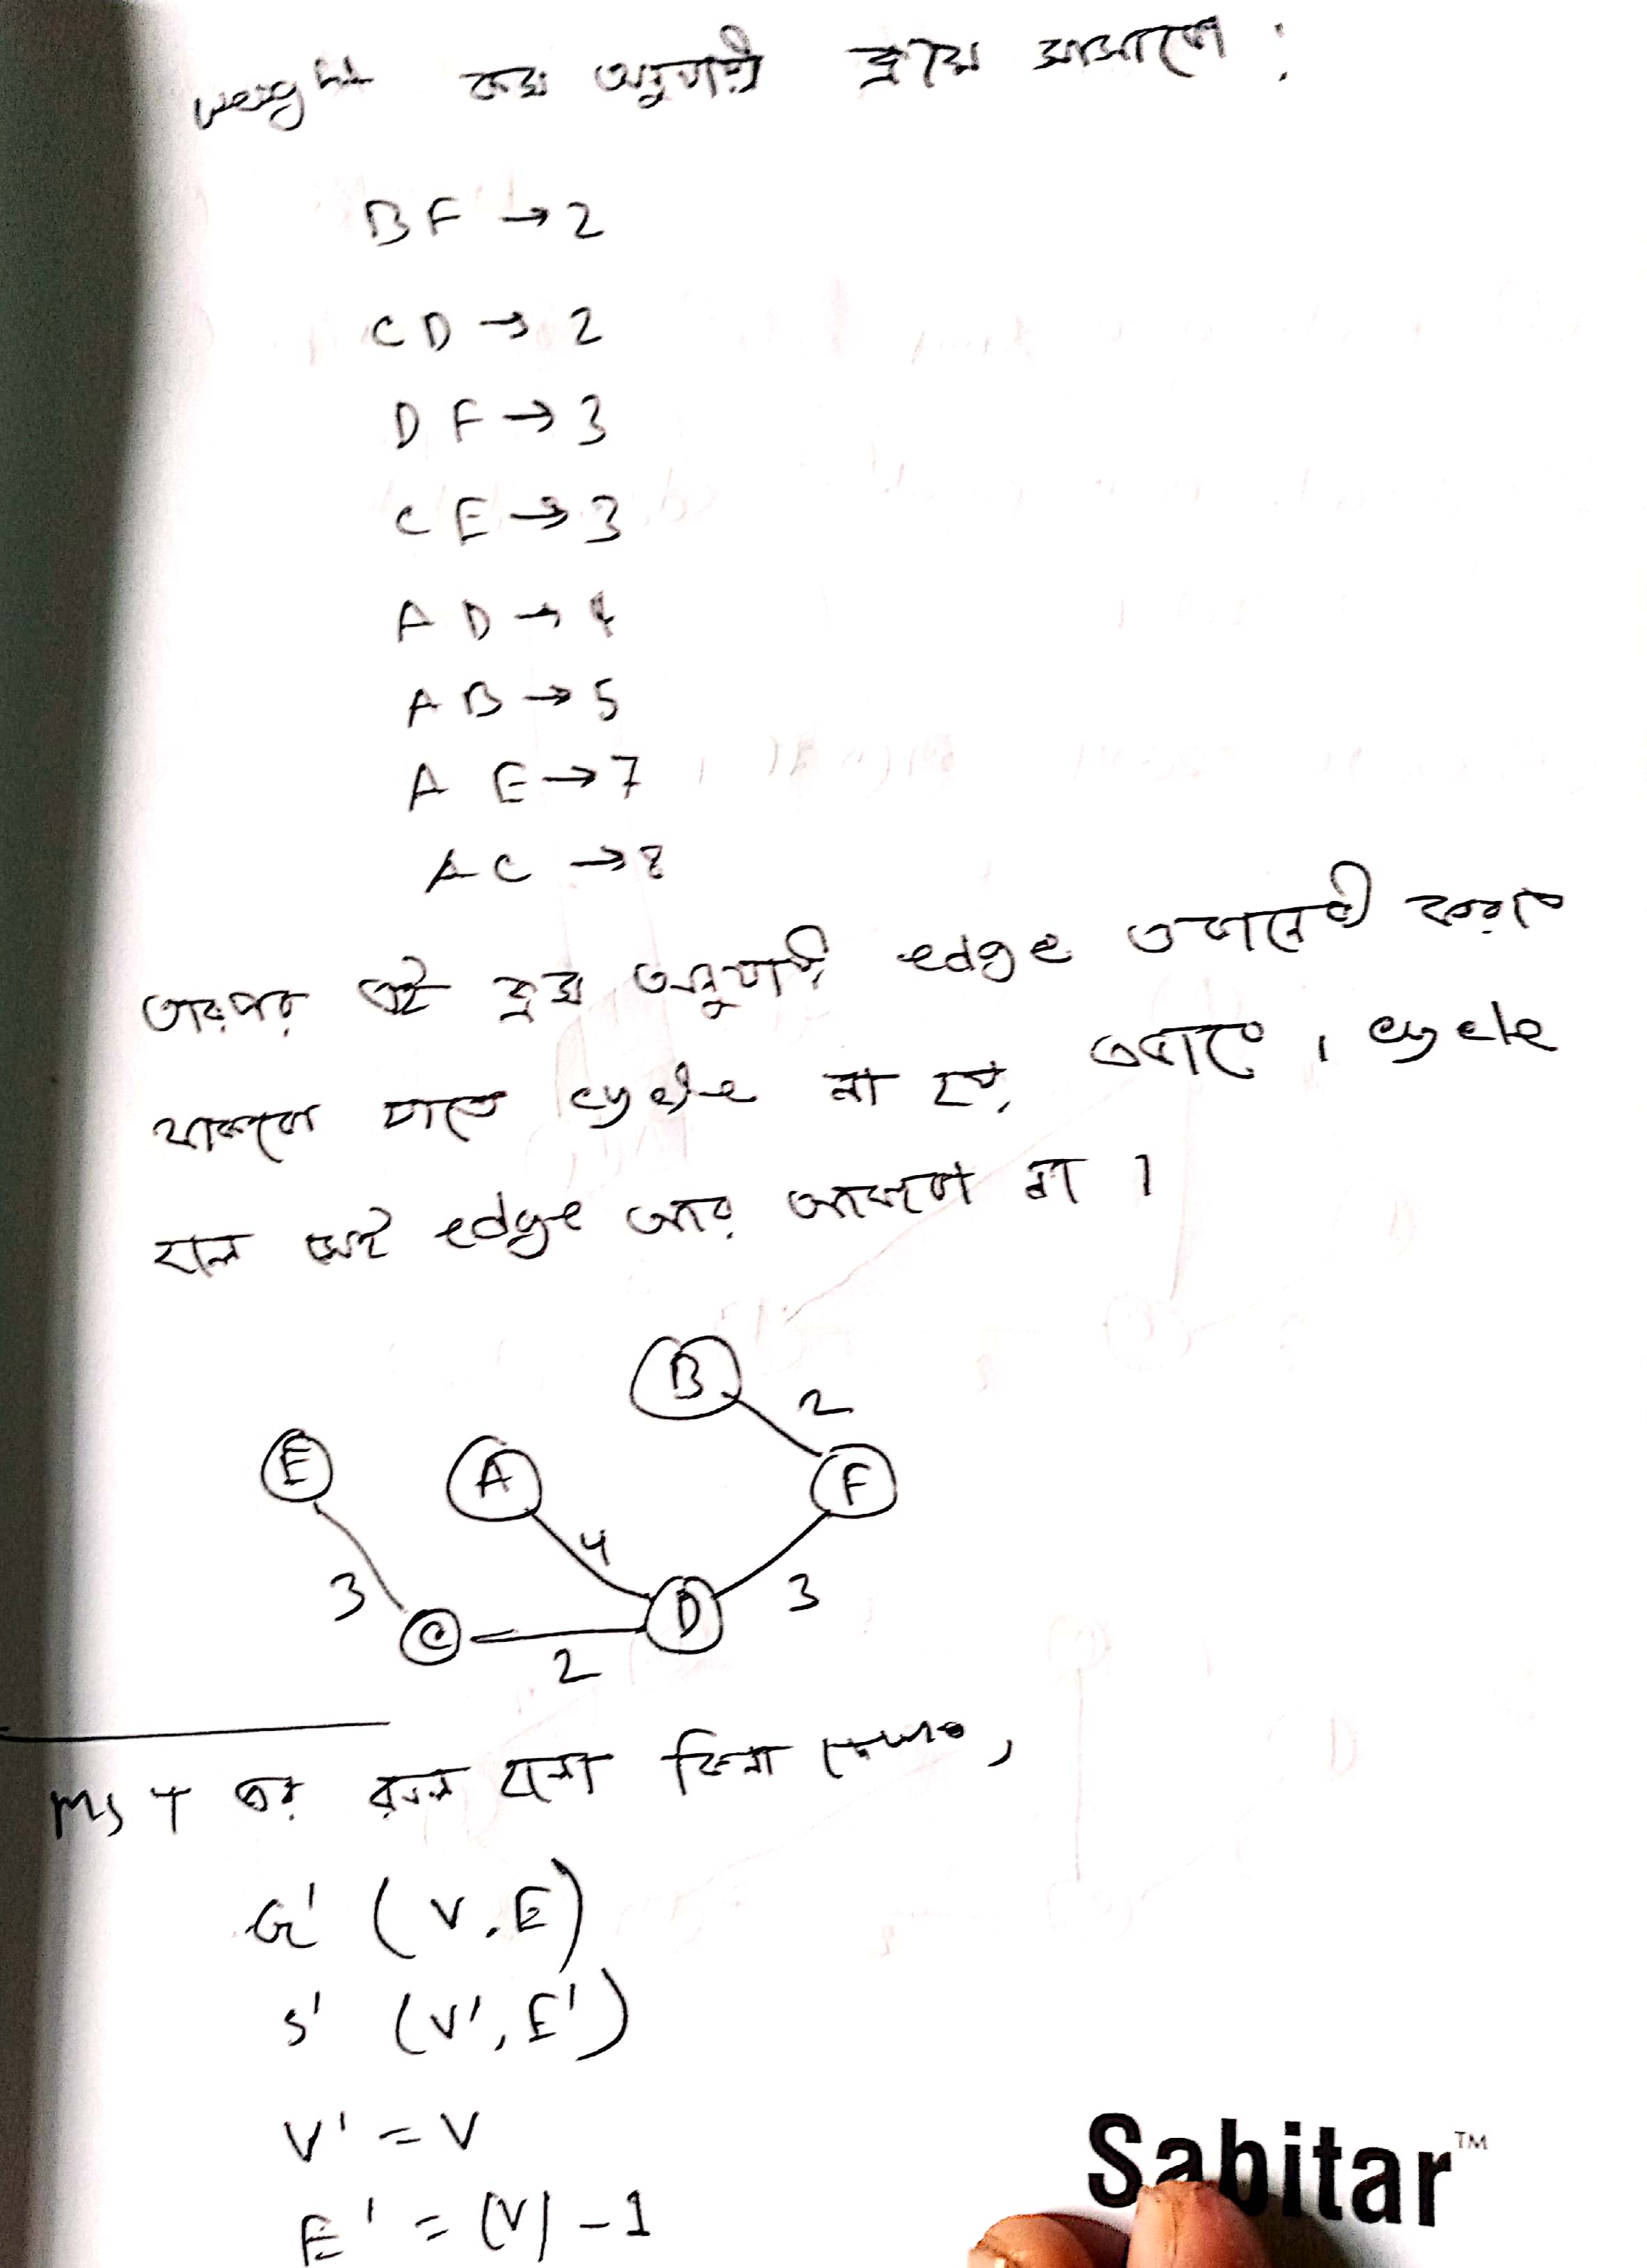 weight কম অনুযায়ী ক্রমে সাজালে :
BF → 2
CD → 2
DF → 3
CE → 3
AD → 4
AB → 5
AE → 7
AC → 8
তারপর এই ক্রম অনুযায়ী edge
থাকলে যাতে cycle না হয়, cycle
হলে সেই edge আর আকাবো না ।
B
2
E
A
F
4
3
3
C
D
2
MST এর কিনা
G' (V, E)
S' (V', E')
V' = V
E' = |V| - 1
Sabitar™